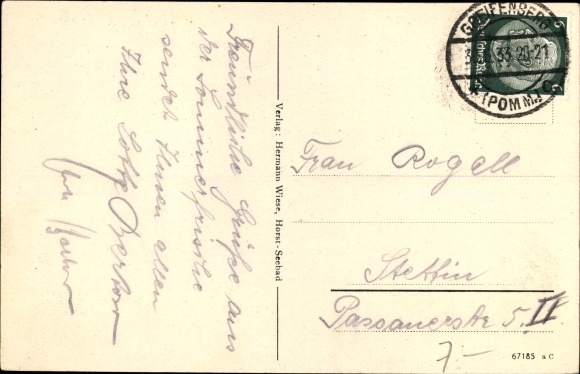 Freundliche Grüße aus
der Sommerfrische
sendet Ihnen allen
Ihre Lotte Bertow
Verlag: Hermann Wiese, Horst-Seebad
GREIFENBERG
33.20-21
(POMM) C
6
Frau Rogell
Stettin
Passauerstr 5. II
7.–
67185 a C